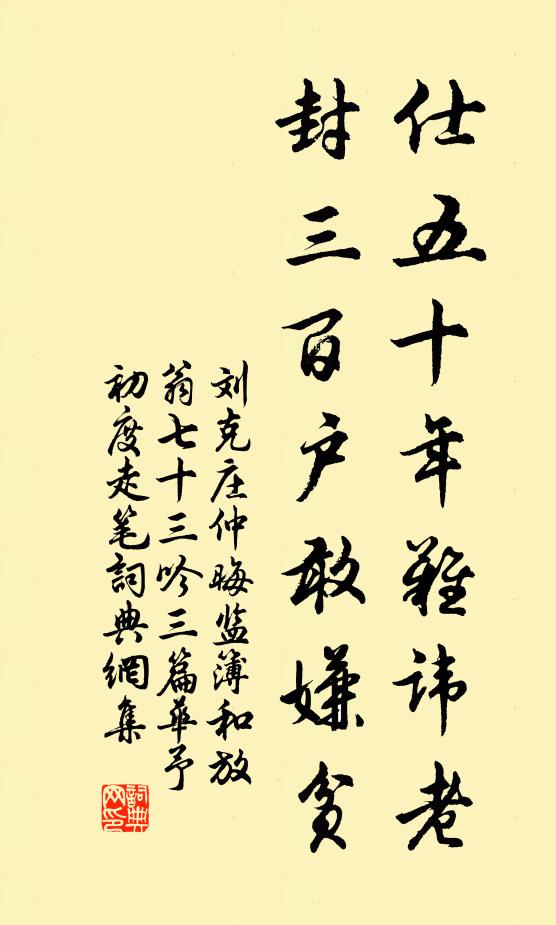 仕五十年难讳老
封三百户敢嫌贫
刘克庄仲晦监簿和放
翁七十三吟三篇华予
初度走笔詞典網集
詞典
网印